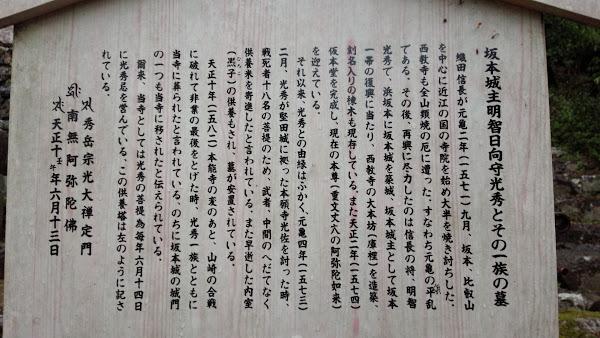 坂本城主明智日向守光秀とその一族の墓
織田信長が元亀二年(一五七一)九月、坂本、比叡山
を中心に近江の国の寺院を始め大半を焼き討ちした。
西教寺も全山類焼の厄に遭った。すなわち元亀の平乱
である。その後、再興に尽力したのは信長の将、明智
光秀で、浜坂本に坂本城を築城、坂本城主として坂本
一帯の復興に当たり、西教寺の大本坊(庫裡)を造築、
刻名入りの棟木も現存している。また天正二年(一五七四)
仮本堂を完成し、現在の本尊(重文丈六の阿弥陀如来)
を迎えている。
それ以来、光秀との由縁はふかく、元亀四年(一五七三)
二月、光秀が堅田城に拠った本願寺光佐を討った時、
戦死者十八名の菩提のため、武者、中間のへだてなく
供養米を寄進したと言われている。また早逝した内室
(熙子)の供養もされ、墓が安置されている。
天正十年(一五八二)本能寺の変のあと、山崎の合戦
に破れて非業の最後をとげた時、光秀一族とともに
当寺に葬られたと言われている。のちに坂本城の城門
の一つも当寺に移されたと伝えられている。
爾来、当寺としては光秀の菩提為毎年六月十四日
に光秀忌を営んでいる。この供養塔は左のように記さ
れている。
秀岳宗光大禅定門
南無阿弥陀佛
天正十壬午年六月十三日